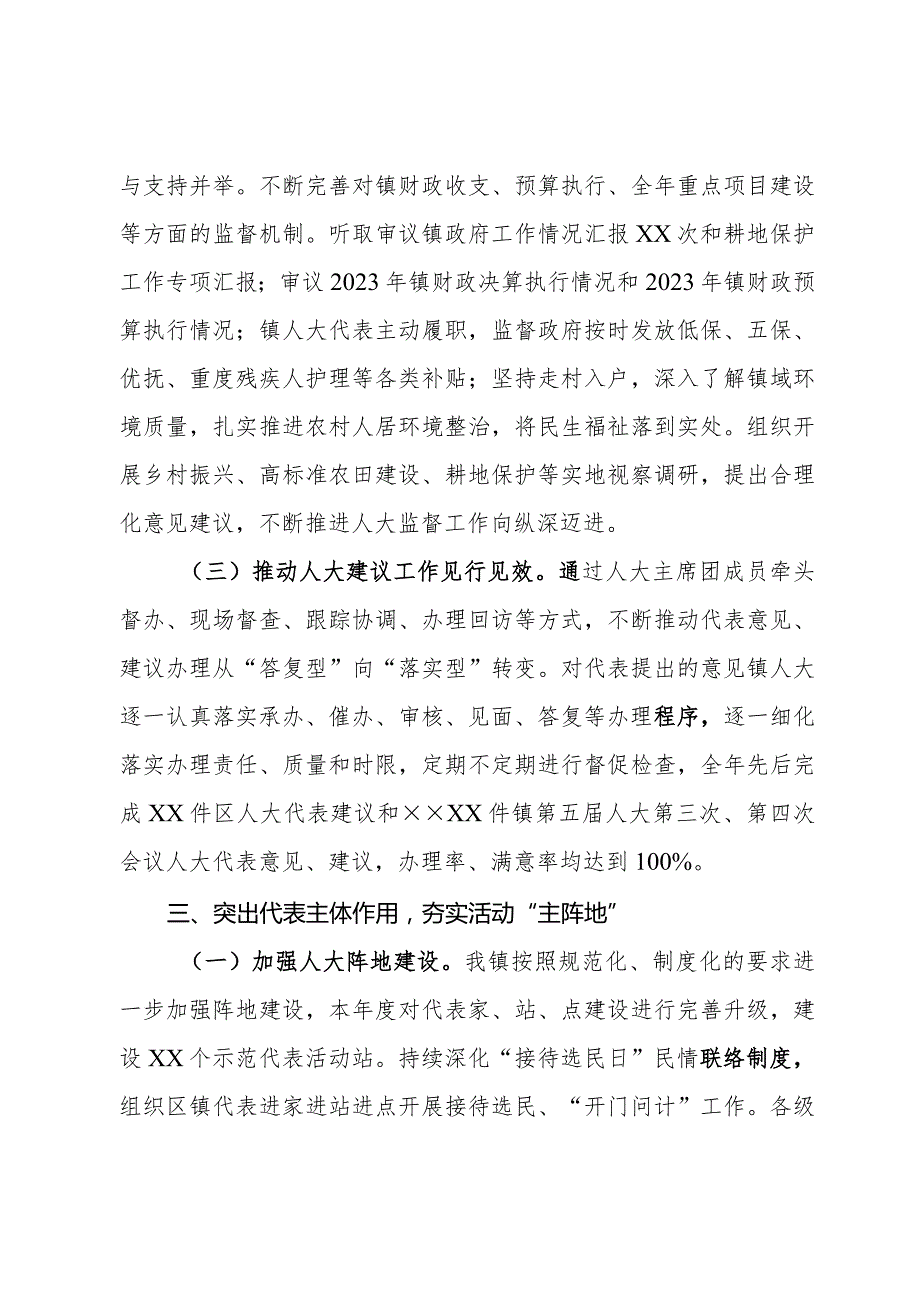 与支持并举。不断完善对镇财政收支、预算执行、全年重点项目建设
等方面的监督机制。听取审议镇政府工作情况汇报 XX 次和耕地保护
工作专项汇报；审议 2023 年镇财政决算执行情况和 2023 年镇财政预
算执行情况；镇人大代表主动履职，监督政府按时发放低保、五保、
优抚、重度残疾人护理等各类补贴；坚持走村入户，深入了解镇域环
境质量，扎实推进农村人居环境整治，将民生福祉落到实处。组织开
展乡村振兴、高标准农田建设、耕地保护等实地视察调研，提出合理
化意见建议，不断推进人大监督工作向纵深迈进。
（三）推动人大建议工作见行见效。通过人大主席团成员牵头
督办、现场督查、跟踪协调、办理回访等方式，不断推动代表意见、
建议办理从“答复型”向“落实型”转变。对代表提出的意见镇人大
逐一认真落实承办、催办、审核、见面、答复等办理程序，逐一细化
落实办理责任、质量和时限，定期不定期进行督促检查，全年先后完
成 XX 件区人大代表建议和××XX 件镇第五届人大第三次、第四次
会议人大代表意见、建议，办理率、满意率均达到 100%。
三、突出代表主体作用，夯实活动“主阵地”
（一）加强人大阵地建设。我镇按照规范化、制度化的要求进
一步加强阵地建设，本年度对代表家、站、点建设进行完善升级，建
设 XX 个示范代表活动站。持续深化“接待选民日”民情联络制度，
组织区镇代表进家进站进点开展接待选民、“开门问计”工作。各级